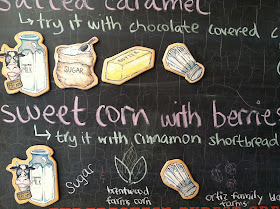 salted caramel
↳ try it with chocolate covered c
SUGAR
BUTTER
sweet corn with berries
↳ try it with cinnamon shortbread
Sugar
brentwood
farms corn
ortiz family
farms